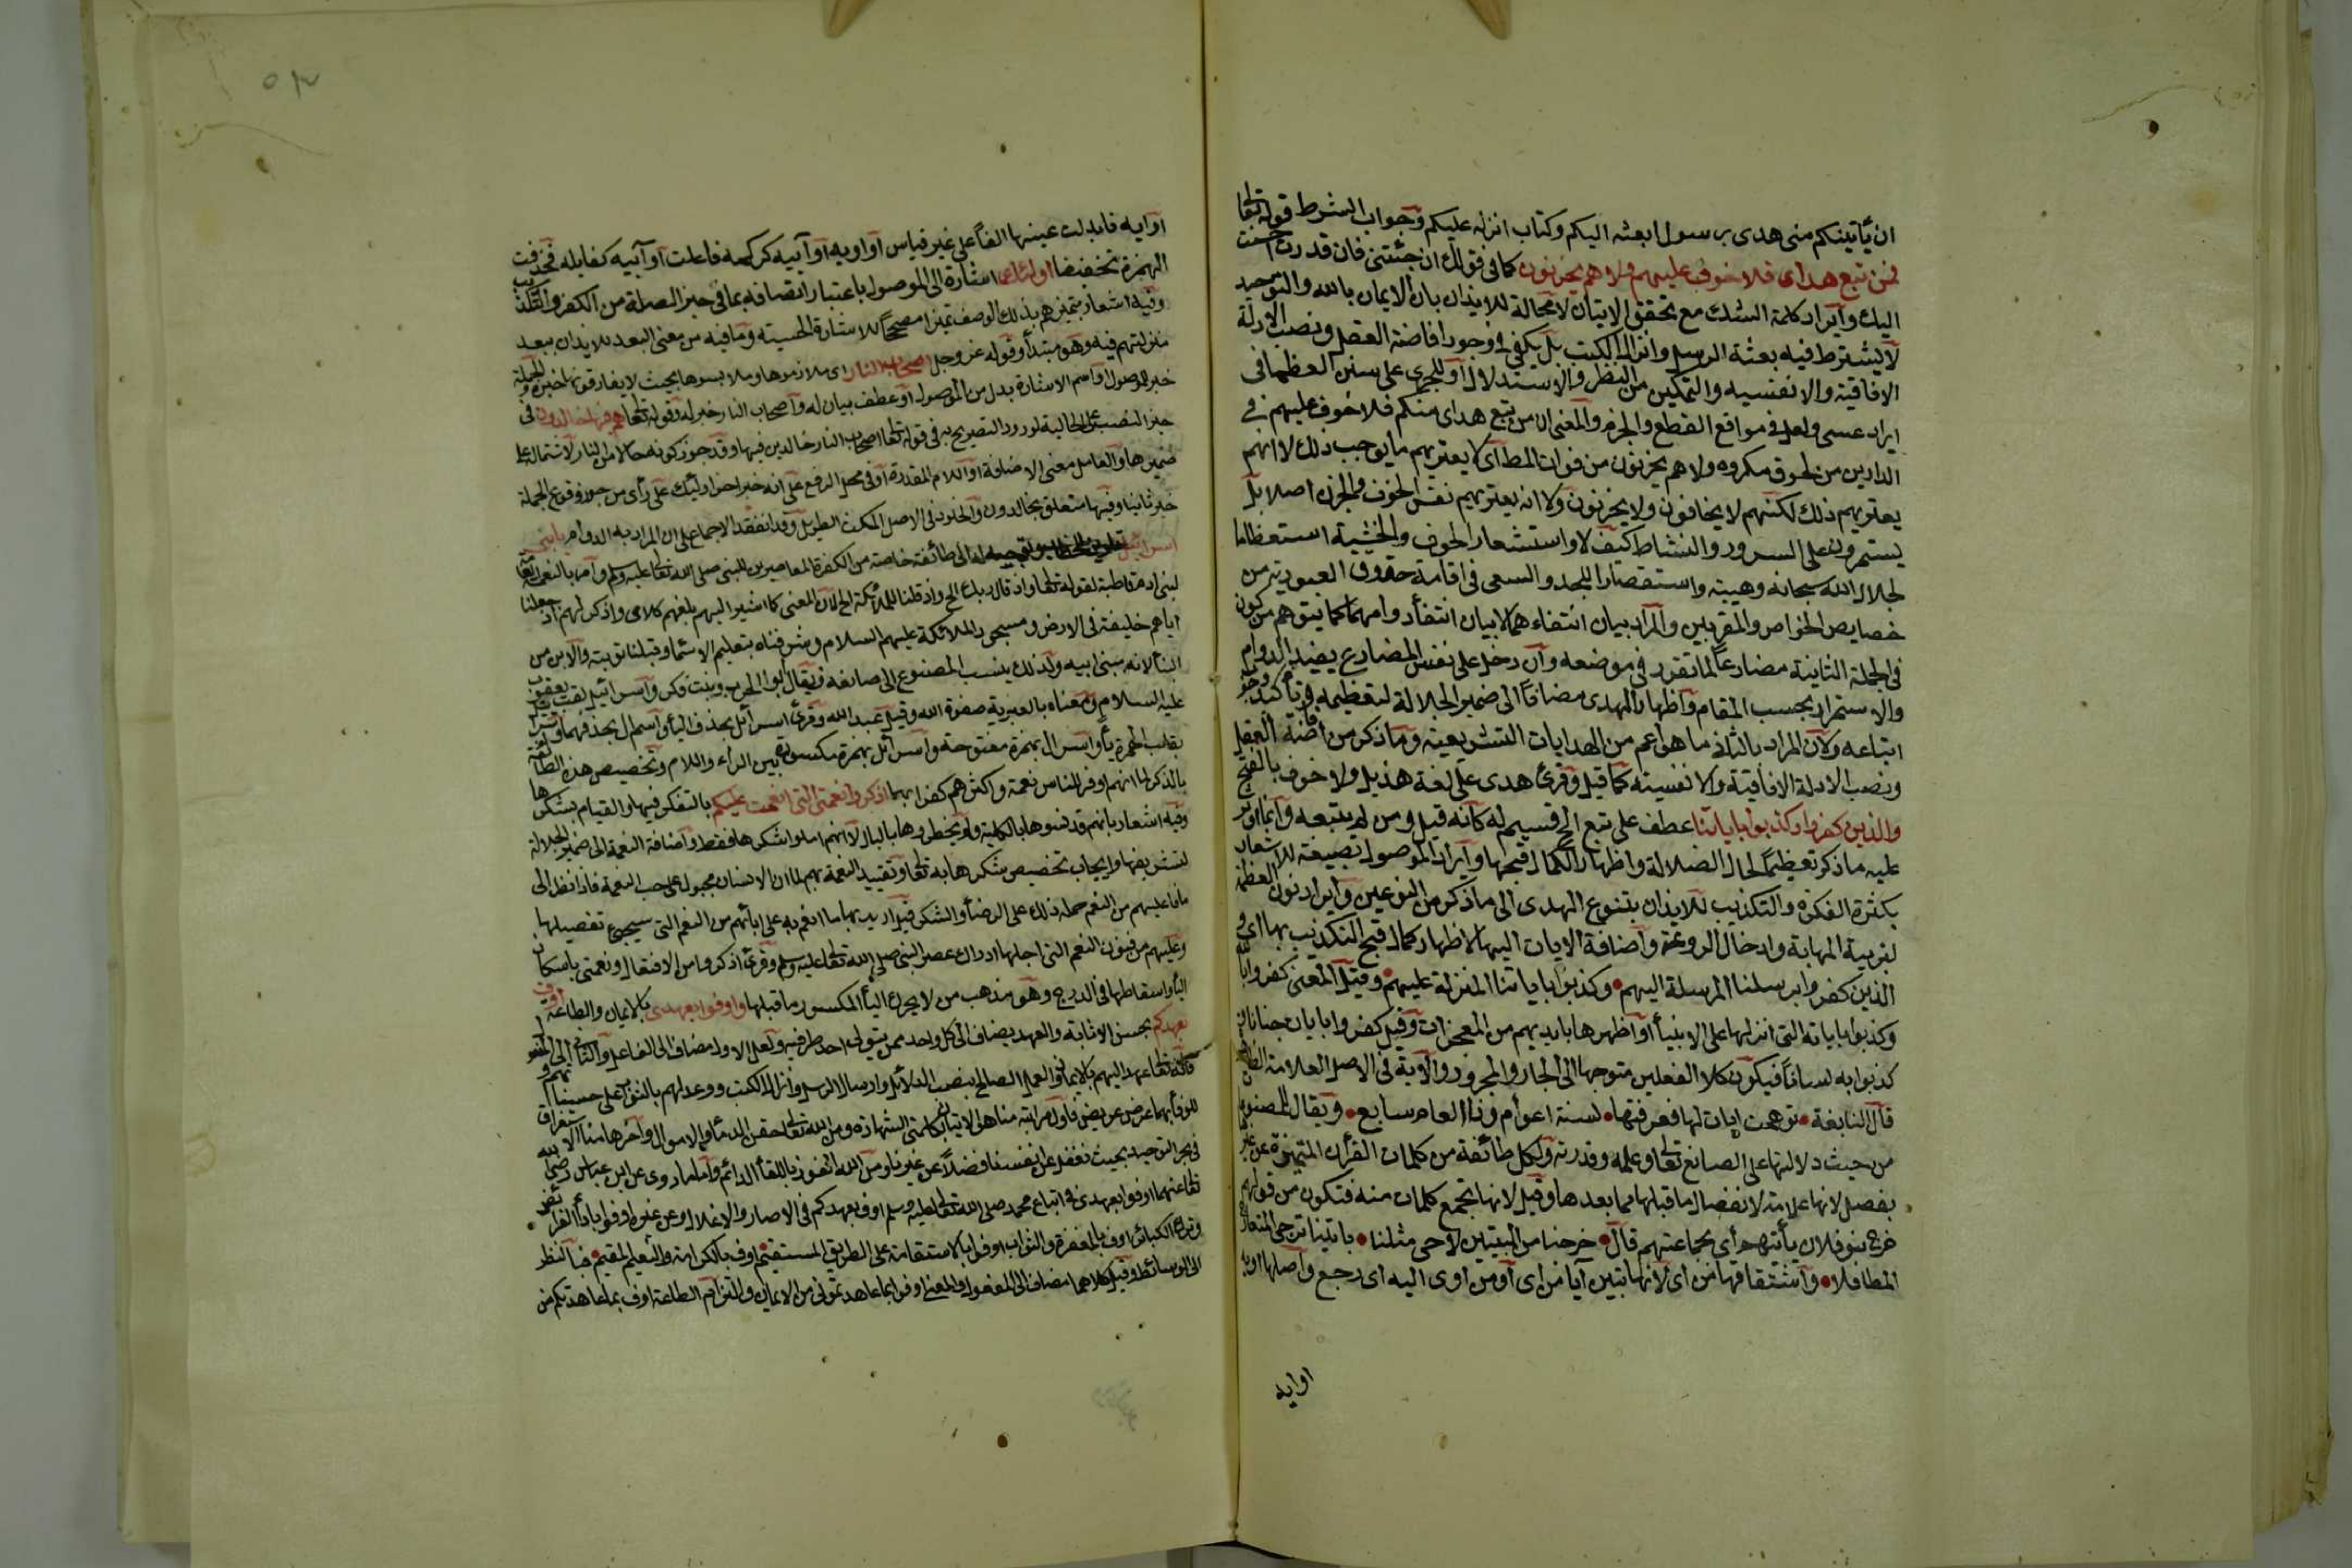 ان يأتينكم منى هدى برسول ابعثه اليكم وكتاب انزله عليكم وجواب الشرط قوله تعالى
فمن تبع هداى فلا خوف عليهم ولا هم يحزنون كما فى قولك ان جئتنى فان قدرت احسنت
اليك وايراد كلمة الشك مع تحقق الاتيان لا محالة للايذان بان الايمان بالله والتوحيد
لا يشترط فيه بعثة الرسل وانزال الكتب بل يكفى فى وجوبه افاضة العقل ونصب الادلة
الافاقية والانفسيه والتمكين من النظر والاستدلال او للجرى على سنن العظما فى
ايراد عسى ولعل فى مواقع القطع والجزم والمعنى ان من تبع هداى منكم فلا خوف عليهم فى
الدارين من لحوق مكروه ولا هم يحزنون من فوات المطلوب اى لا يعتريهم ما يوجب ذلك لا انهم
يعتريهم ذلك لكنهم لا يخافون ولا يحزنون ولا انه يعتريهم نفس الخوف والحزن اصلا بل
يستمرون على السرور والنشاط كيف لا واستشعار الخوف والخشية استعظاما
لجلال الله سبحانه وهيبته واستقصارا للجد والسعى فى اقامة حقوق العبودية من
خصايص الخواص والمقربين والمراد بيان انتفاءهما لا بيان انتفأ دوامهما كما يتوهم من كون
فى الجملة الثانية مضارعا لما تقرر فى موضعه وان دخل على نفس المضارع يفيد الدوام
والاستمرار بحسب المقام واظهار الهدى مضافا الى ضمير الجلالة لتعظيمه وتأكيد وجوب
اتباعه ولان المراد بالثانى ما هو اعم من الهدايات التشريعية وما ذكر من افاضة العقل
ونصب الادلة الافاقية والانفسية كما قيل وقرئ هدى على لغة هذيل ولا خوف بالفتح
والذين كفروا وكذبوا باياتنا عطف على تبع الخ قسيم له كانه قيل ومن لم يتبعه وانما اوثر
عليه ما ذكر تعظيما لحال الضلالة واظهارا لكمال قبحها وايراد الموصول بصيغة للاشعار
بكثرة الفكرة والتكذيب للايذان بتنوع الهدى الى ما ذكر من النوعين وايراد نون العظمة
لتربية المهابة وادخال الروعة واضافة الايات اليها لاظهار كمال قبح التكذيب بها اى و
الذين كفروا برسلنا المرسلة اليهم وكذبوا باياتنا المنزلة عليهم وقيل المعنى كفروا بالله
وكذبوا باياته التى انزلها على الانبيأ او اظهرها بايديهم من المعجزات وقيل كفروا بايات جنانا و
كذبوا به لسانا فيكون كلا الفعلين متوجها الى الجار والمجرور والاية فى الاصل العلامة الظاهرة
قال النابغة توهمت ايات لها فعرفتها لستة اعوام وذا العام سابع ويقال للمصنوعات
من حيث دلالتها على الصانع تعالى وعلمه وقدرته ولكل طائفة من كلمات القرأن المتميزة عن غيرها
بفصل لانها علامة لانفصال ما قبلها مما بعدها وقيل لانها تجمع كلمات منه فتكون من قولهم
خرج بنو فلان بأيتهم اى بجماعتهم قال خرجنا من البيتين لا حى مثلنا باياتنا نزجى المتعال
المطافلا واشتقاقها من اى لانها تبين آيا من اى او من اوى اليه اى رجع واصلها اوية
اوايه
اوايه فابدلت عينها الفا على غير قياس او اويه او آييه كرمكه فاعلت او آييه كقايله فحذفت
الهمزة تخفيفا اولئك اشارة الى الموصول باعتبار اتصافه بما فى حيز الصلة من الكفر والتكذيب
وفيه اشعار بتميزهم بذلك الوصف تميزا مصححا للاشارة الحسية وما فيه من معنى البعد للايذان ببعد
منزلتهم فيه وهو مبتدأ وقوله عز وجل اصحاب النار اى ملازموها وملابسوها بحيث لا يفارقونها خبره والجملة
خبر للموصول او اسم الاشارة بدل من الموصول او عطف بيان له واصحاب النار خبر له وقوله تعالى هم فيها خالدون فى
حيز النصب على الحالية لورود التصريح به فى قوله تعالى اصحاب النار خالدين فيها وقد جوز كونه حالا من النار لاشتماله على
ضميرها والعامل معنى الاضافة او اللام المقدرة او فى محل الرفع على انه خبر اخر اولئك على رأى من جوز وقوع الجملة
خبرا ثانيا وفيها متعلق بخالدون والخلود فى الاصل المكث الطويل وقد انعقد الاجماع على ان المراد به الدوام يا بنى
اسرائيل تلوين للخطاب وتوجيه له الى طائفة خاصة من الكفرة المعاصرين للنبى صلى الله تعالى عليه وسلم وآمر بالنعم الفائضة
لبنى ادم قاطبة لقوله تعالى واذ قال ربك الخ واذ قلنا للملائكة الخ لان المعنى كما اشير اليهم بلغهم كلامى واذكر لهم اذ جعلنا
اياهم خليفة فى الارض ومسجود الملائكة عليهم السلام وشرفناه بتعليم الاسما وقبلنا توبته والابن من
البنأ لانه مبنى ابيه ولذلك ينسب المصنوع الى صانعه فيقال ابو الحرب وبنت فكر واسرائيل لقب يعقوب
عليه السلام ومعناه بالعبرية صفوة الله وقيل عبد الله وقرئ اسرائل بحذف اليأ واسرال بحذفهما واسرايل
بقلب الهمزة يأ واسرال بهمزة مفتوحة واسرائل بهمزة مكسورة بين الراء واللام وتخصيص هذه الطائفة
بالذكر لما انهم اوفر الناس نعمة واكثرهم كفرا بها اذكروا نعمتى التى انعمت عليكم بالتفكر فيها والقيام بشكرها
وفيه اشعار بانهم قد نسوها بالكلية ولم يخطروها بالبال لا انهم اهملوا شكرها فقط واضافة النعمة الى ضمير الجلالة
لتشريفها وايجاب تخصيص شكرها به تعالى وتقييد النعمة بهم لما ان الانسان مجبول على حب النعمة فاذا نظر الى
ما فاض عليهم من النعم حمله ذلك على الرضأ والشكر قيل اريد بها ما انعم به على ابائهم من النعم التى سيجئ تفصيلها
وعليهم من فنون النعم التى اجلها ادراك عصر النبى صلى الله تعالى عليه وسلم وقرئ اذكروا من الافتعال ونعمتى باسكان
اليأ واسقاطها فى الدرج وهو مذهب من لا يحرك اليأ المكسور ما قبلها واوفوا بعهدى بالايمان والطاعة اوف
بعهدكم بحسن الاثابة والعهد يضاف الى كل واحد ممن يتولى احد طرفيه ولعل الاول مضاف الى الفاعل والثانى الى المفعول
فانه تعالى عهد اليهم بالايمان والعمل الصالح بنصب الدلائل وارسال الرسل وانزال الكتب ووعد لهم بالثواب على حسناتهم و
للوفأ بهما عرض عريض فاول مراتبه منا هو الاتيان بكلمتى الشهادة ومن الله تعالى حقن الدمأ والاموال وآخرها منا الاستغراق
فى بحر التوحيد بحيث نغفل عن انفسنا فضلا عن غيرنا ومن الله الفوز باللقأ الدائم واما ما روى عن ابن عباس رضى الله
تعالى عنهما اوفوا بعهدى فى اتباع محمد صلى الله تعالى عليه وسلم اوف بعهدكم فى الاصار والاغلال وعن غيره اوفوا بادأ الفرائض
وترك الكبائر اوف بالمغفرة والثواب اوفوا بالاستقامة على الطريق المستقيم اوف بالكرامة والنعيم المقيم فبالنظر
الى الوسائط وقيل كلاهما مضاف الى المفعول والمعنى اوفوا بما عاهدتمونى من الايمان والتزام الطاعة اوف بما عاهدتكم من